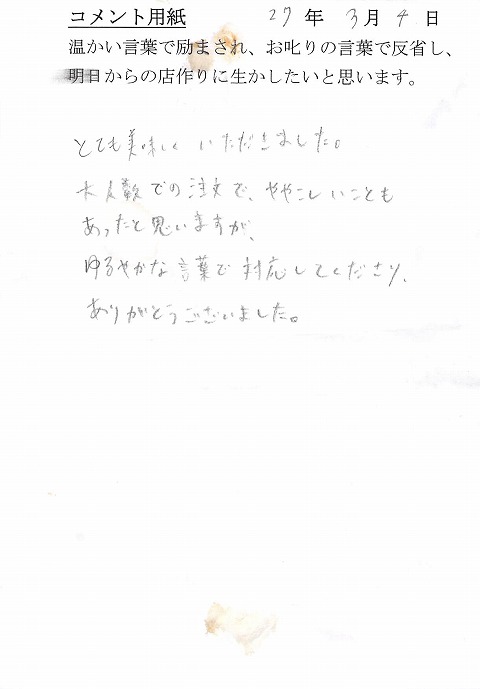 コメント用紙 27年 3月 4日
温かい言葉で励まされ、お叱りの言葉で反省し、
明日からの店作りに生かしたいと思います。
とても美味しく いただきました。
大人数での注文で、ややこしいことも
あったと思いますが、
ゆるやかな言葉で対応してくださり、
ありがとうございました。